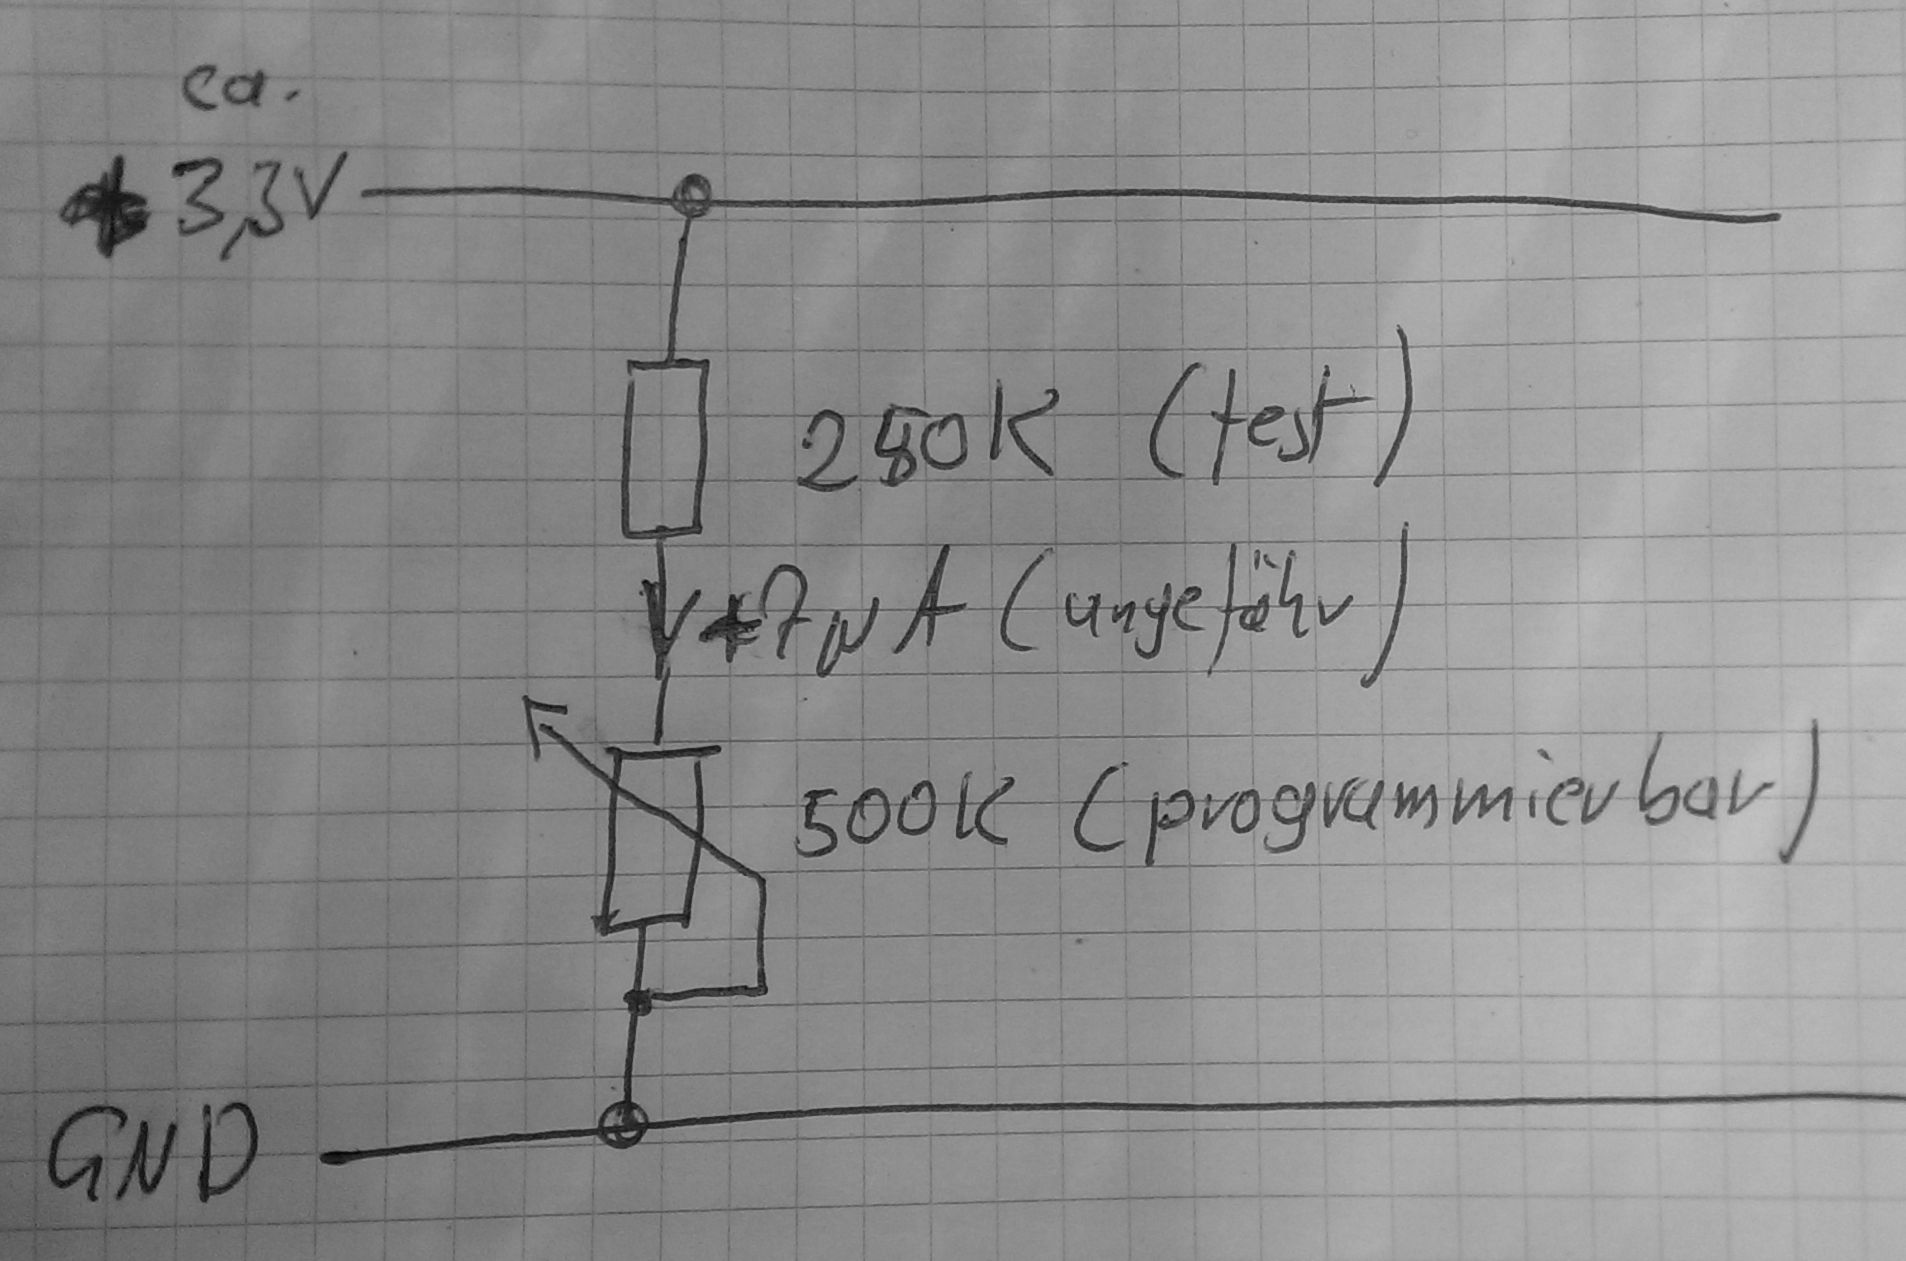 ca.
+ 3,3V
250K (test)
7µA (ungefähr)
500K (programmierbar)
GND